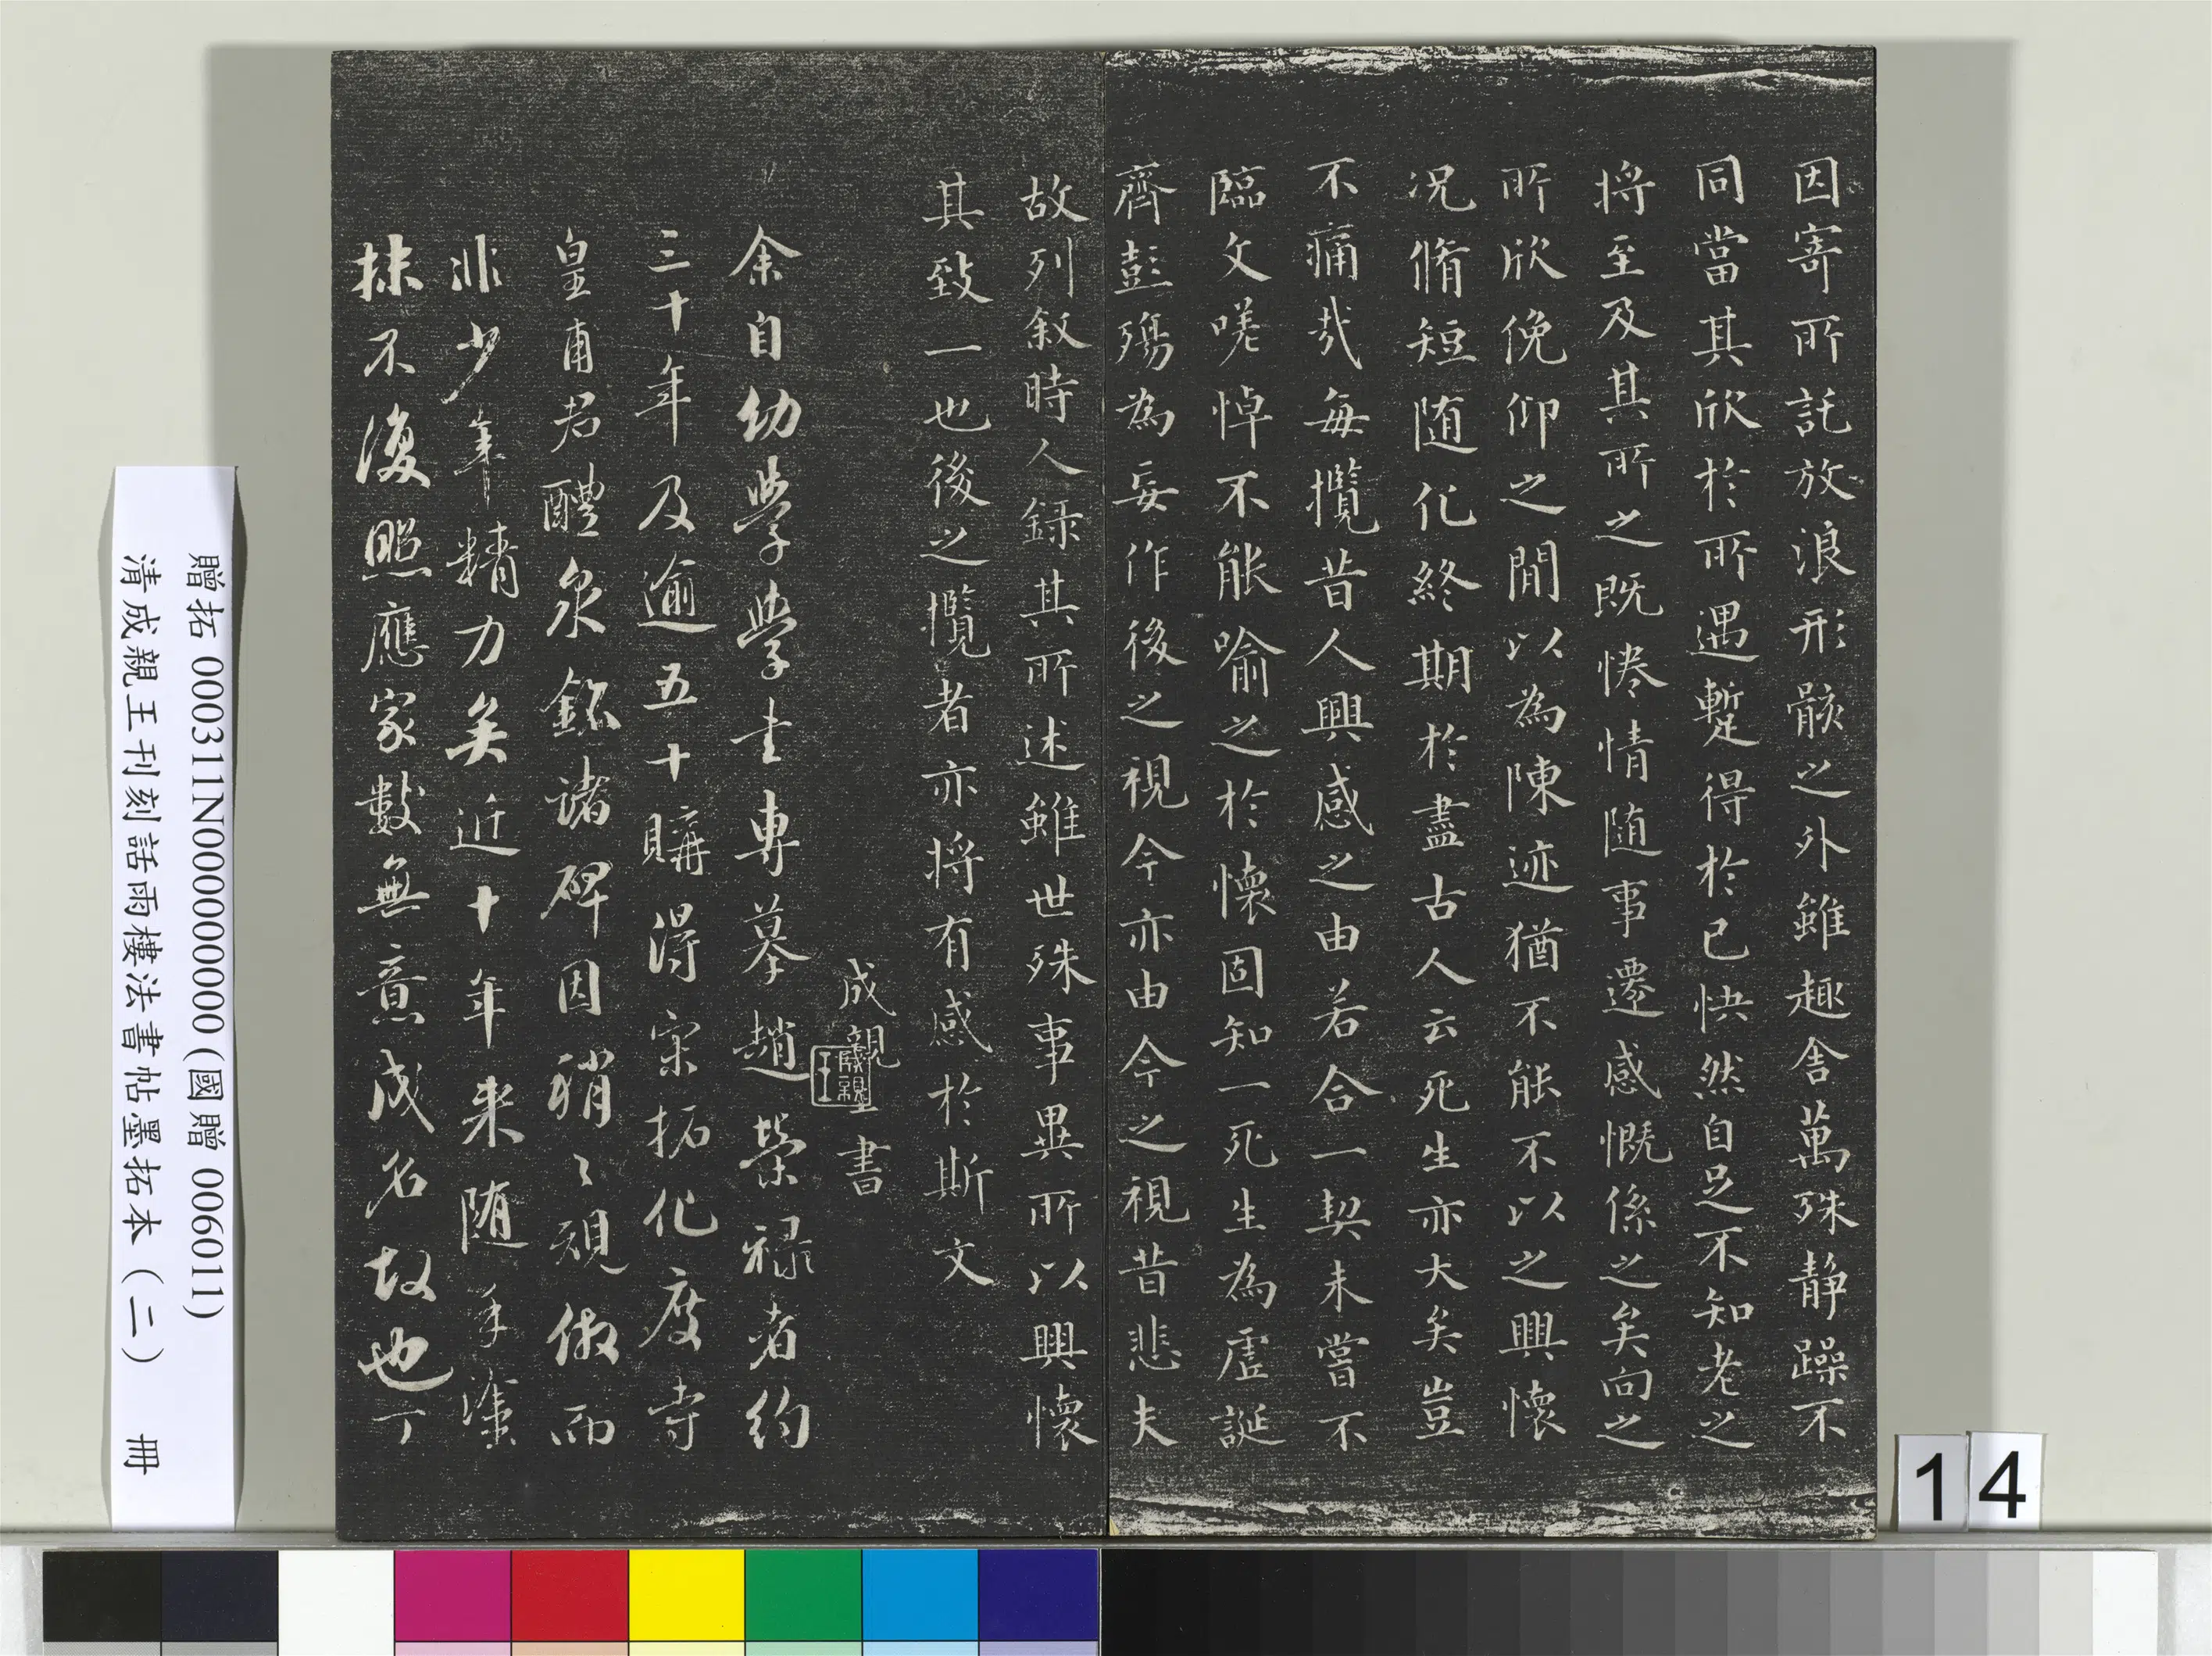 因寄所託放浪形骸之外雖趣舍萬殊静躁不
同當其欣於所遇蹔得於己怏然自足不知老之
将至及其所之既惓情随事遷感慨係之矣向之
所欣俛仰之閒以為陳迹猶不能不以之興懷
况脩短随化終期於盡古人云死生亦大矣豈
不痛哉每攬昔人興感之由若合一契未嘗不
臨文嗟悼不能喻之於懷固知一死生為虛誕
齊彭殤為妄作後之視今亦由今之視昔悲夫
故列叙時人録其所述雖世殊事異所以興懷
其致一也後之攬者亦将有感於斯文
成親王書
成親王
余自幼學學士專摹趙榮禄者約
三十年及逾五十購得宋拓化度寺
皇甫君醴泉銘諸碑因稍〻規倣而
非少年精力矣近十年来随手塗
抹不復照應家數無意成名故也丁
贈拓 000311N000000000 (國贈 006011)
清成親王刊刻話雨樓法書帖墨拓本（二） 冊
14